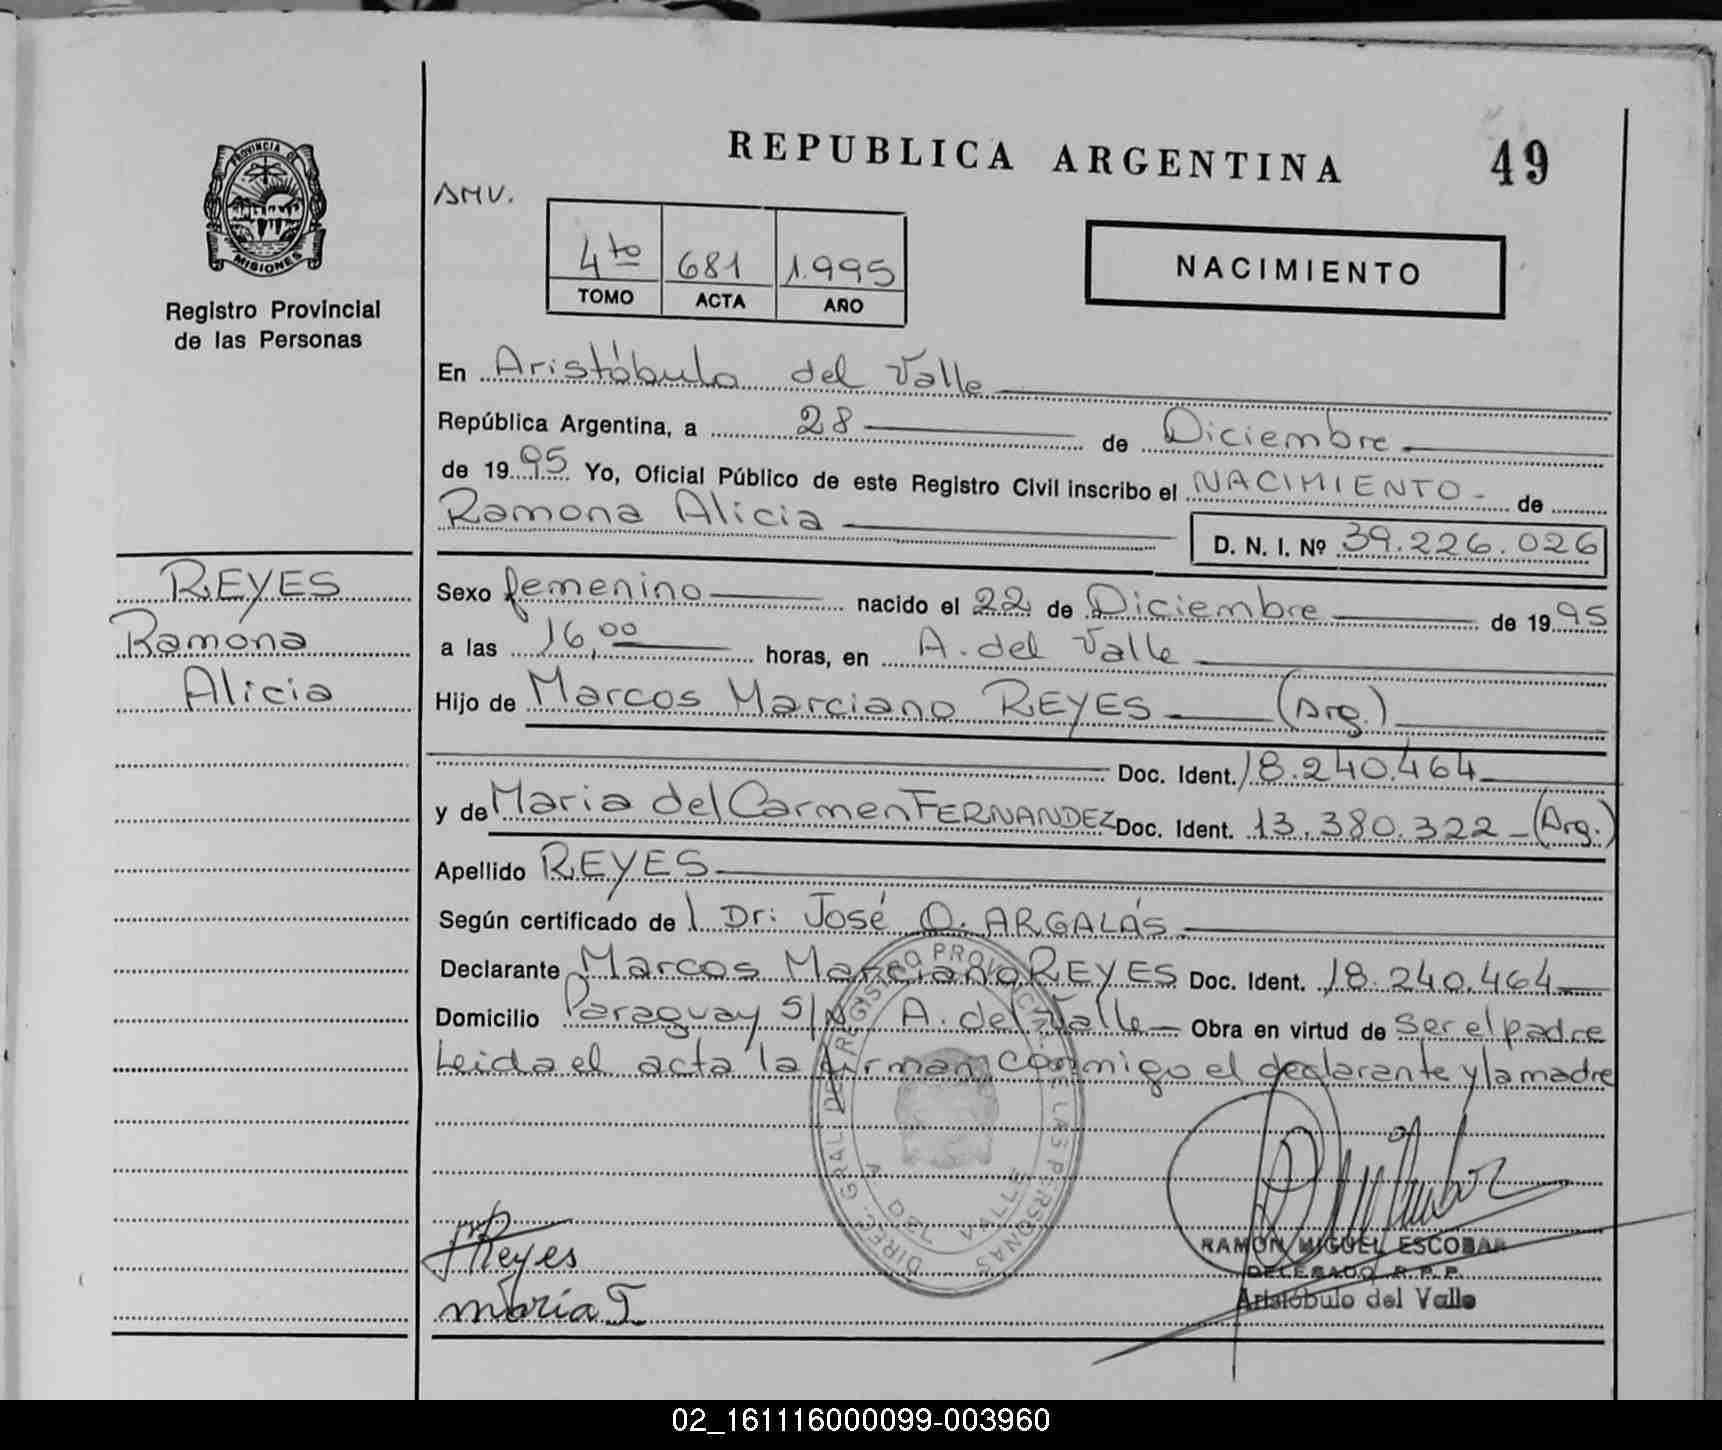 REPUBLICA ARGENTINA
49
AMV.
4to 681 1.995
TOMO ACTA AÑO
NACIMIENTO
PROVINCIA DE
MISIONES
Registro Provincial
de las Personas
En Aristóbulo del Valle
República Argentina, a 28 de Diciembre
de 1995 Yo, Oficial Público de este Registro Civil inscribo el NACIMIENTO - de
Ramona Alicia
D. N. I. Nº 39.226.026
REYES
Ramona
Alicia
Sexo femenino nacido el 22 de Diciembre de 1995
a las 16,00 horas, en A. del Valle
Hijo de Marcos Marciano REYES (Arg.)
Doc. Ident. 18.240.464
y de Maria del Carmen FERNANDEZ Doc. Ident. 13.380.322 - (Arg.)
Apellido REYES
Según certificado de l Dr: José O. ARGALÁS
Declarante Marcos Marciano REYES Doc. Ident. 18.240.464
Domicilio Paraguay S/Nº A. del Valle - Obra en virtud de ser el padre
Leida el acta la firman conmigo el declarante y la madre
DIREC. GRAL. DE REGISTRO PROVINCIAL DE LAS PERSONAS
A. DEL VALLE
Reyes
maria
RAMON MIGUEL ESCOBAR
DELEGADO R.P.P.
Aristóbulo del Valle
02_161116000099-003960